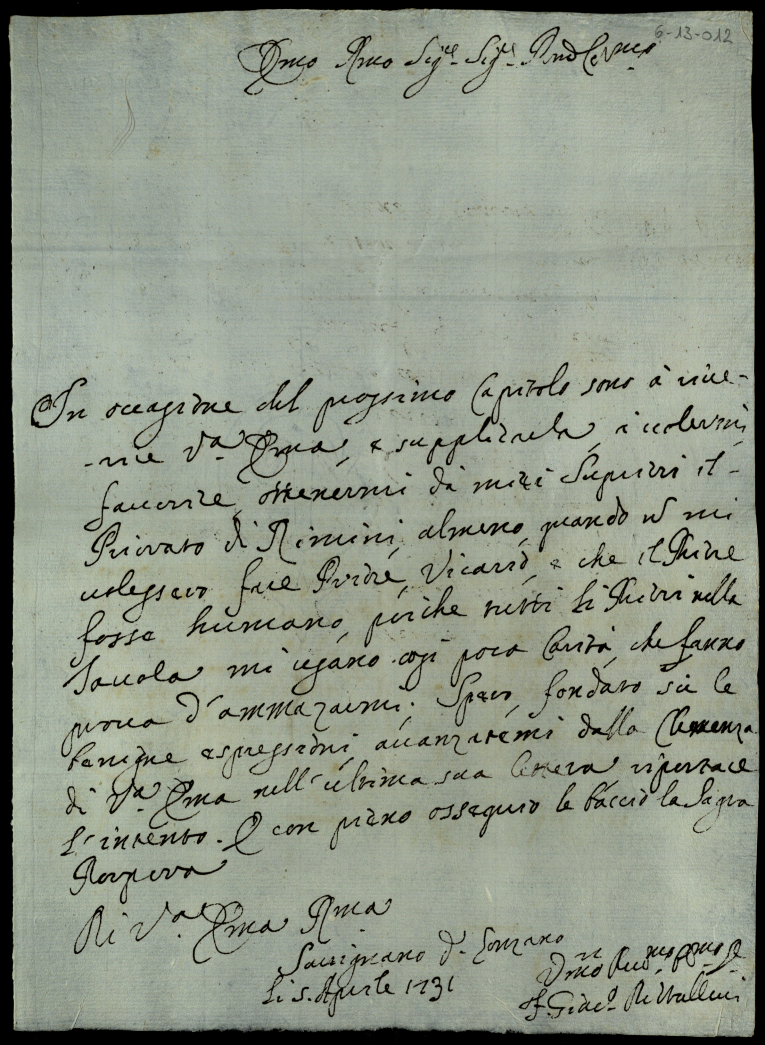 6-13-012
Emo Rmo Sig.re Sig.re Pnd Col.mo
In occasione del prossimo Capitolo sono à rive-
-rire V.a Ema, e supplicarla, à volermi
favorire, ottenermi da miei Superiori il
Priorato di Rimini, almeno, quando ñ mi
volessero fare Priore, Vicario, e che il Priore
fosse humano, perche tutti li Priori nella
Tavola mi usano così poca Carità, che fanno
prova d'ammazarmi. Spero, fondato sù le
benigne espressioni avanzatemi dalla Clemenza
di V.a Ema nell'ultima sua lettera, riportare
l'intento. E con pieno ossequio le baccio la Sagra
Porpora
Di V.a Ema Rma
Savignano di
li 5. Aprile 1731
F. Giac.o